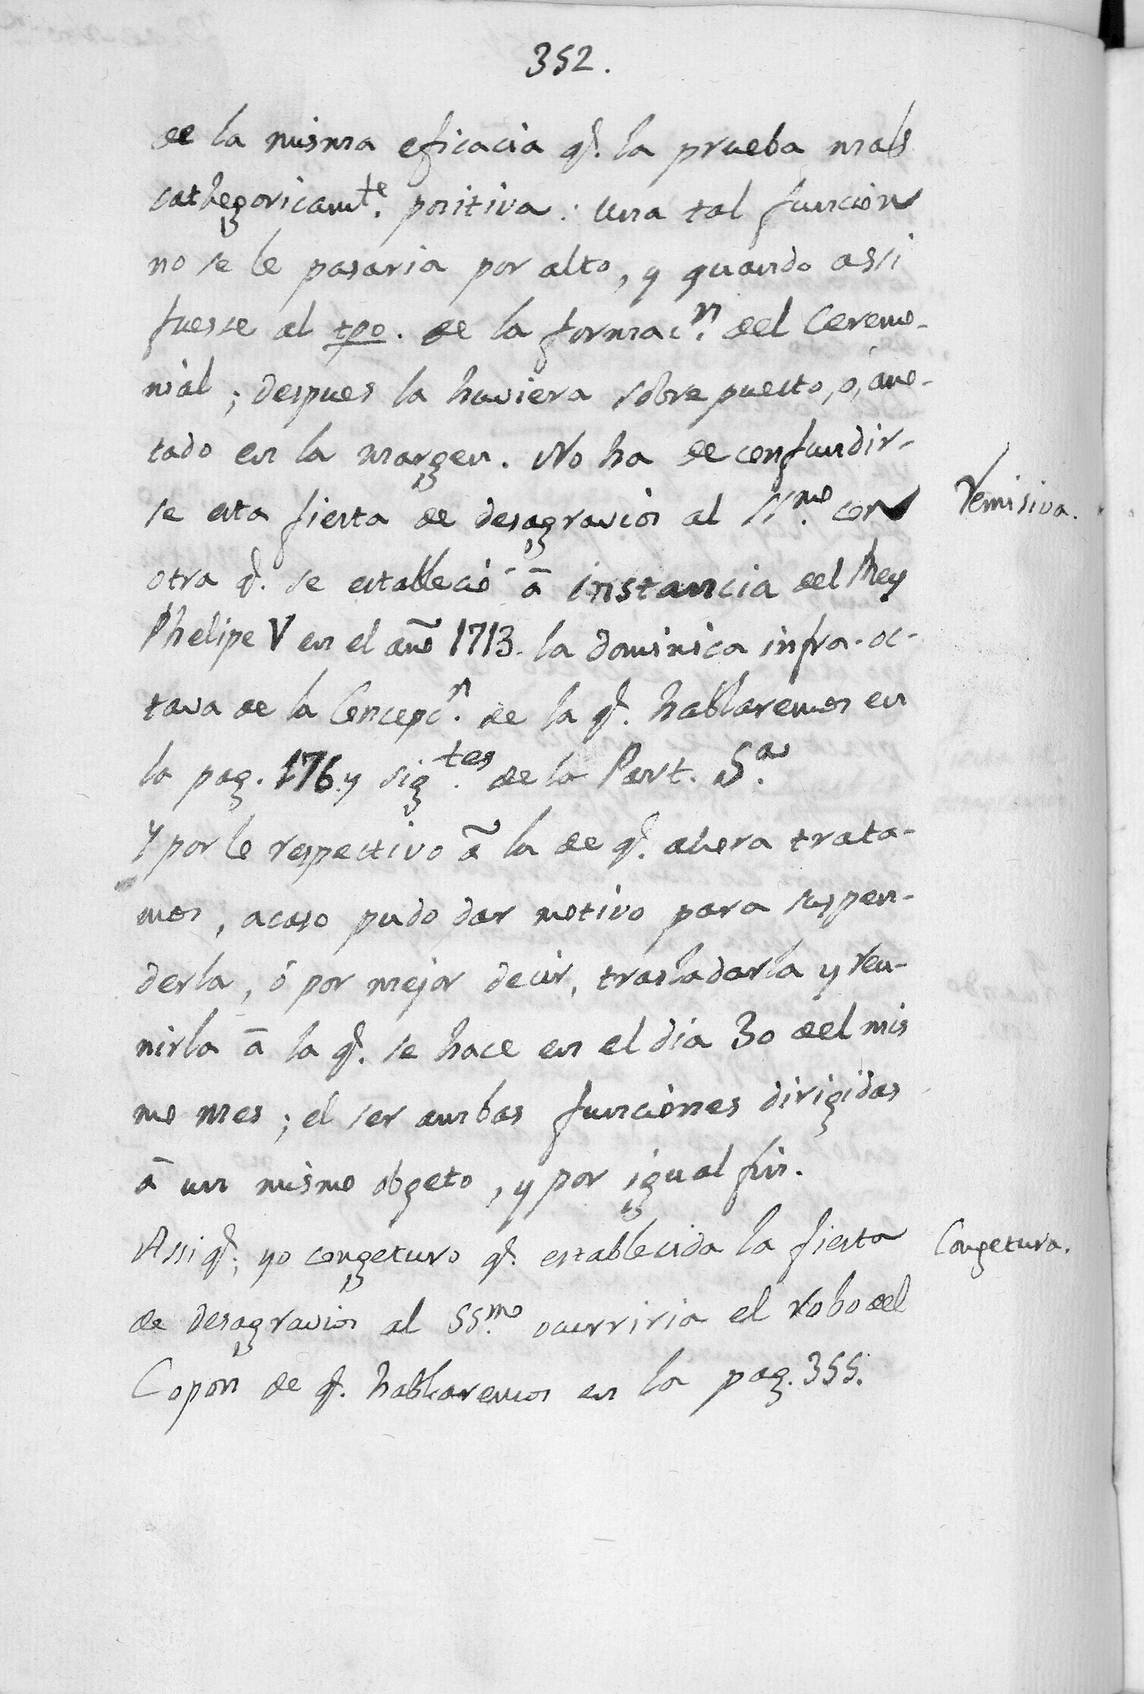 352.
de la misma eficacia q.e la prueba mas
cathegoricam.te positiva: Una tal funcion
no se le pasaria por alto, y quando assi
fuesse al tpo. de la formac.n del Ceremo-
nial; despues la huviera sobre puesto, ó, ano-
tado en la margen. No ha de confundir-
se esta fiesta de desagravios al SS.mo con
Remisiva.
otra q.e se estableció â instancia del Rey
Phelipe V en el año 1713. la dominica infra-oc-
tava de la Concepc.n de la q.e hablaremos en
la pag. 176. y sig.tes de la Part. 5.a
Y por lo respectivo â la de q.e ahora trata-
mos, acaso pudo dar motivo para suspen-
derla, ó por mejor decir, trasladarla y reu-
nirla â la q.e se hace en el dia 30 del mis
mo mes; el ser ambas funciones dirigidas
â un mismo objeto, y por igual fin.
Assi q.e; yo congeturo q.e establecida la fiesta
Congetura.
de desagravios al SS.mo ocurriria el robo del
Copon de q.e hablaremos en la pag. 355.